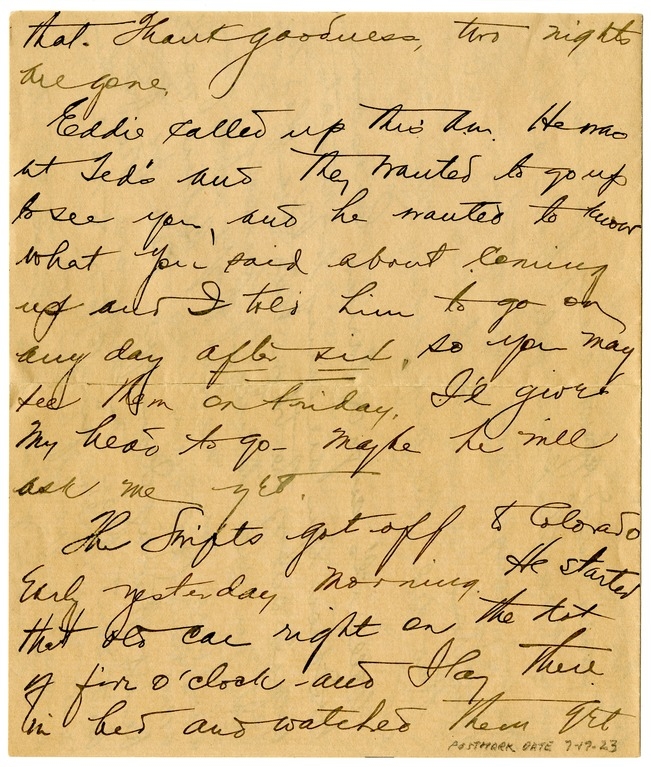 that. Thank goodness, two nights
are gone.
Eddie called up this a.m. He was
at Ted's and they wanted to go up
to see you, and he wanted to know
what you said about coming
up and I told him to go on
any day after six, so you may
see them on Friday. I'd give
my head to go - Maybe he will
ask me yet.
The Swifts got off to Colorado
Early yesterday morning. He started
that old car right on the dot
of five o'clock - and I lay there
in bed and watched them get
POSTMARK DATE 7-19-23